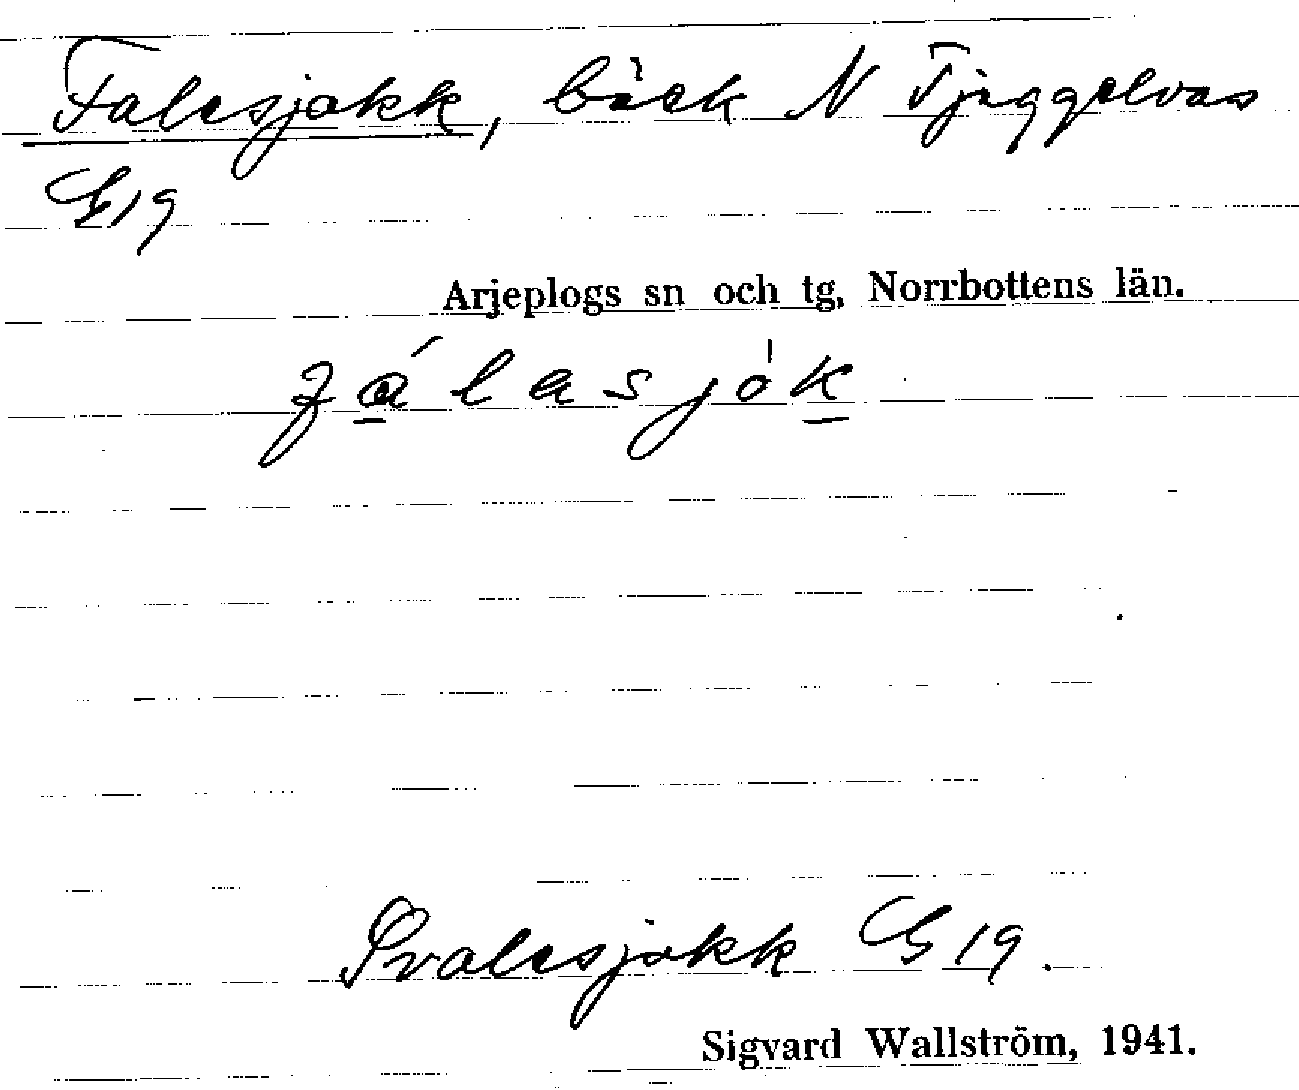 Falesjokk, bäck N Tjeggelvas
G19
Arjeplogs sn och tg, Norrbottens län.
fálasjók
Svalesjokk G 19.
Sigvard Wallström, 1941.